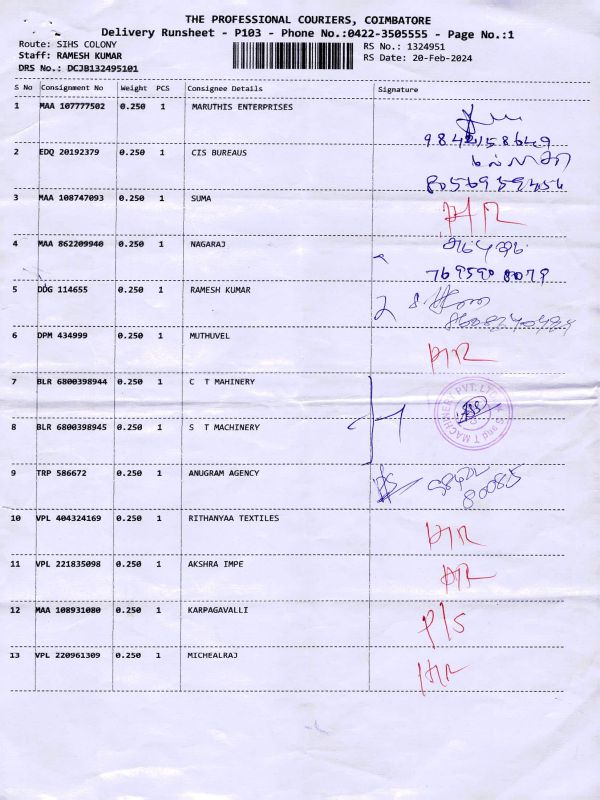 THE PROFESSIONAL COURIERS, COIMBATORE
Delivery Runsheet - P103 - Phone No.:0422-3505555 - Page No.:1
Route: SIHS COLONY RS No.: 1324951
Staff: RAMESH KUMAR RS Date: 20-Feb-2024
DRS No.: DCJB132495101
S No Consignment No Weight PCS Consignee Details Signature
1 MAA 107777502 0.250 1 MARUTHIS ENTERPRISES
9842158649
2 EDQ 20192379 0.250 1 CIS BUREAUS
8056959456
3 MAA 108747093 0.250 1 SUMA
4 MAA 862209940 0.250 1 NAGARAJ
5 DDG 114655 0.250 1 RAMESH KUMAR
6 DPM 434999 0.250 1 MUTHUVEL
7 BLR 6800398944 0.250 1 C T MAHINERY
8 BLR 6800398945 0.250 1 S T MACHINERY
S and T MACHINERY PVT. LT
9 TRP 586672 0.250 1 ANUGRAM AGENCY
80085
10 VPL 404324169 0.250 1 RITHANYAA TEXTILES
11 VPL 221835098 0.250 1 AKSHRA IMPE
12 MAA 108931080 0.250 1 KARPAGAVALLI
P/S
13 VPL 220961309 0.250 1 MICHEALRAJ